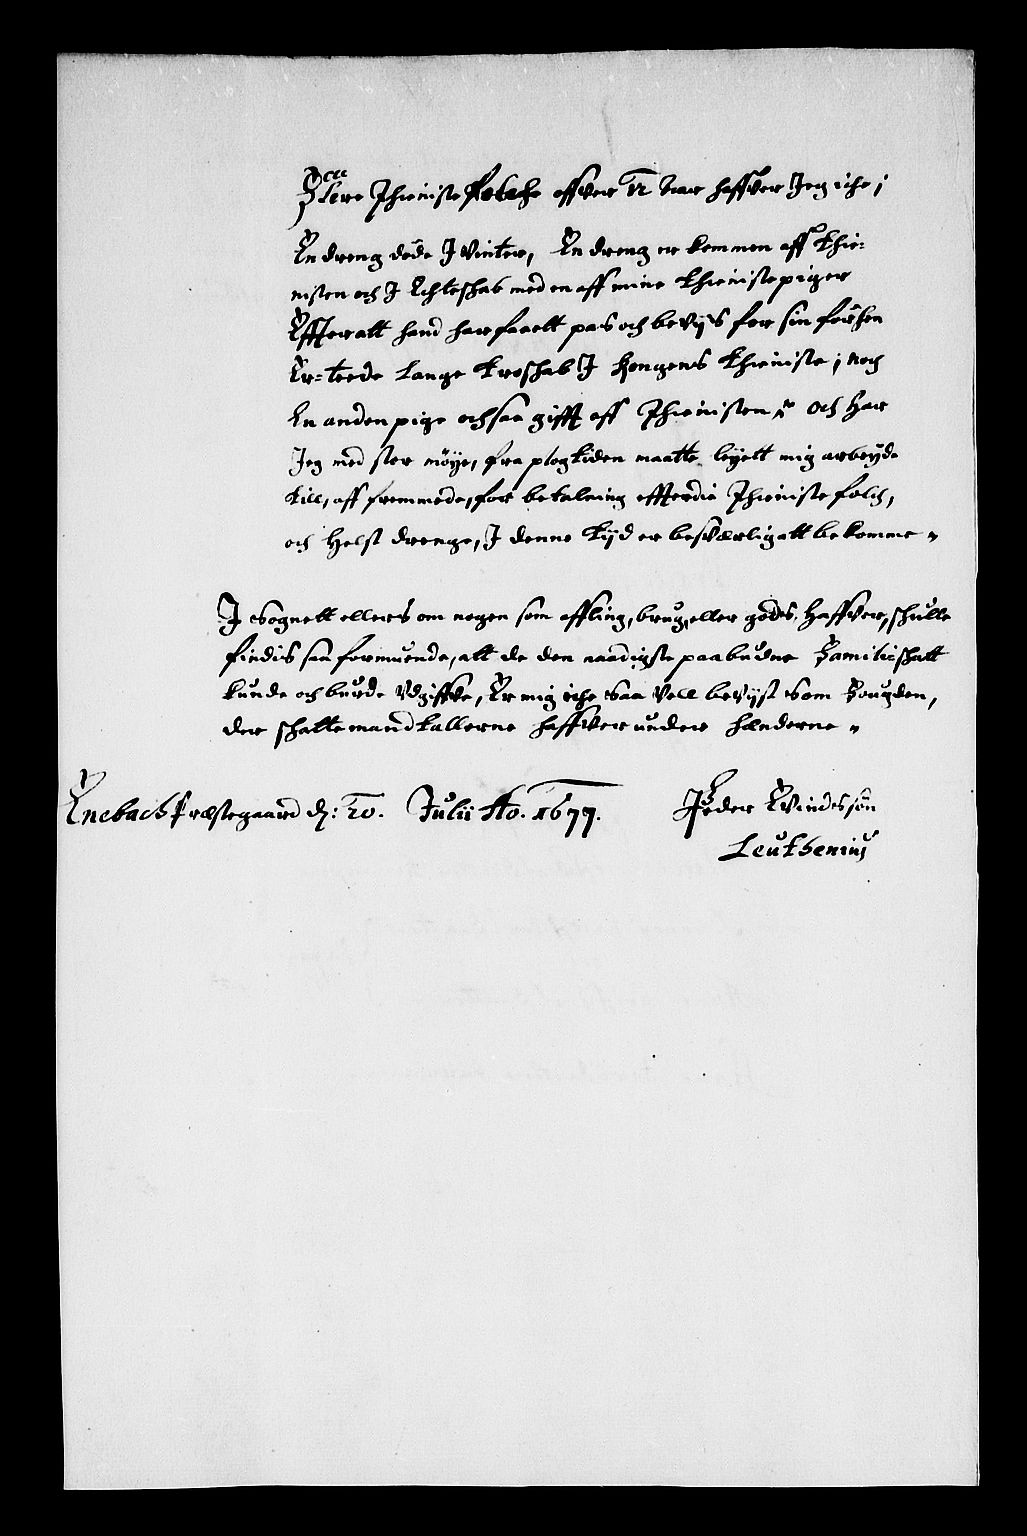 Flere Thieniste folche offver 12 Aar haffver Jeg iche;
En dreng døde J vinter, En dreng er kommen aff thie=
nisten och J Echteskab med en aff mine thienistepiger
Effter att hand har faaett pas och bevijs for sin
Er=teede lange troskab J Kongens thieniste; noch
En anden pige ochsaa gifft aff Thienisten; och har
Jeg med stor möye, fra plogtiden maatte leyett mig arbeyde
till, aff fremmede, for betalning effterdie Thieniste folch,
och helst drenge, J denne tijd er besværlig att bekomme
J Sognett ellers om nogen som affling, brug, eller gods, haffver, skulle
findis saa formuende, att de den naadigste paabudne Familieskatt
kunde och burde udgiffve, Er mig iche saa vell bevijst som Fougden,
der skattemandtallerne haffver under hænderne
Enebach Præstegaard d: 20. Julii Ao. 1677. Peder Evindssøn
Leuthenius